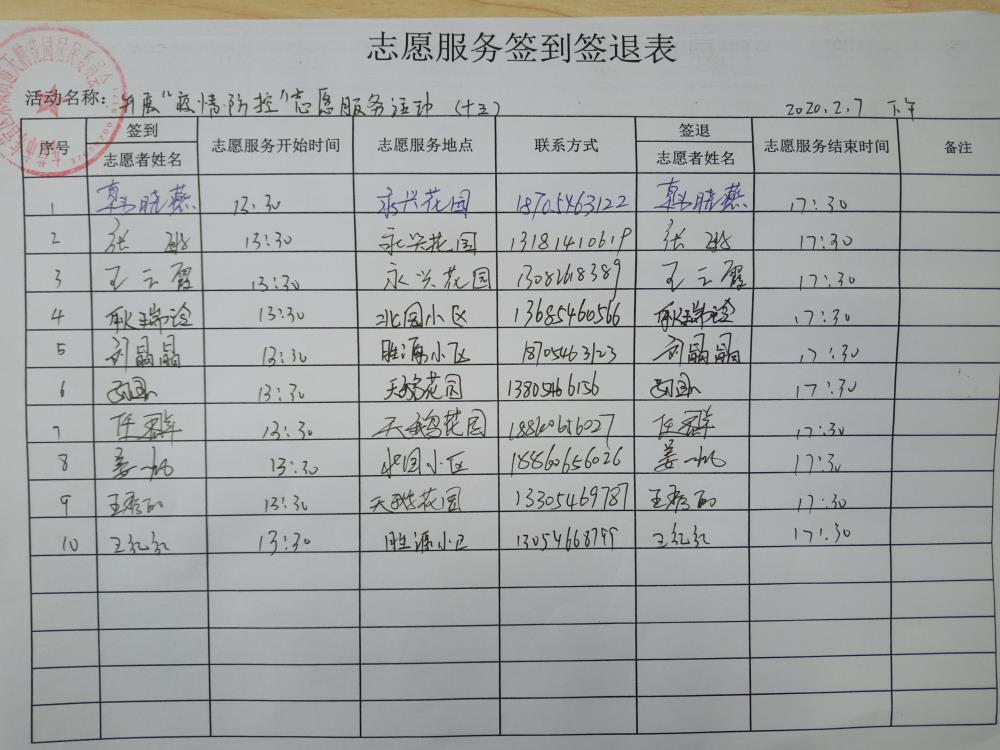 志愿服务签到签退表
活动名称: 开展"疫情防控"志愿服务活动 (十三) 2020.2.7 下午
序号 签到 志愿者姓名 志愿服务开始时间 志愿服务地点 联系方式 签退 志愿者姓名 志愿服务结束时间 备注
1 郭晓燕 13:30 永兴花园 18705463122 郭晓燕 17:30
2 张 13:30 永兴花园 13181410619 张 17:30
3 王云霞 13:30 永兴花园 13082618389 王云霞 17:30
4 13:30 北园小区 13685460566 17:30
5 刘晶晶 13:30 胜源小区 18705463123 刘晶晶 17:30
6 13:30 天鹅花园 13805466156 17:30
7 任 13:30 天鹅花园 18860656027 任 17:30
8 姜一帆 13:30 北园小区 18860656026 姜一帆 17:30
9 王秀丽 13:30 天鹅花园 13305469787 王秀丽 17:30
10 王红红 13:30 胜源小区 13054668799 王红红 17:30